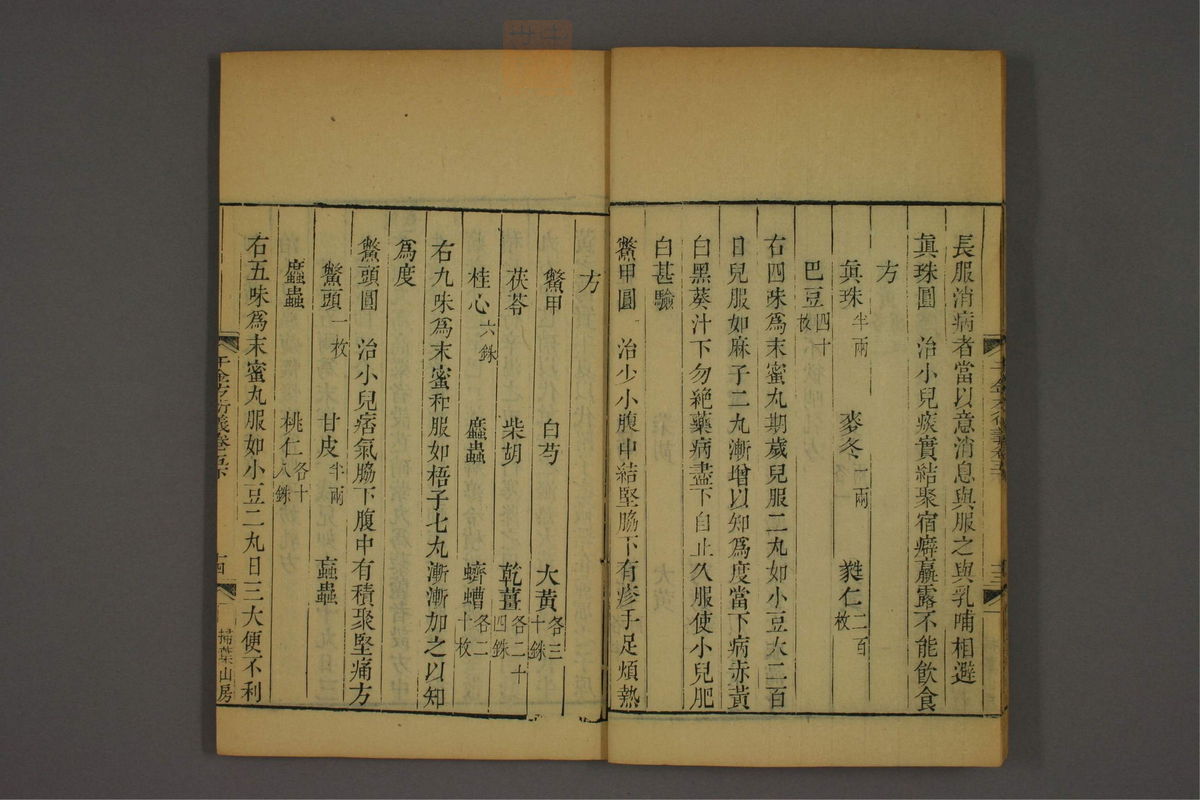 長服消病者當以意消息與服之與乳哺相避
眞珠圓　治小兒痰實結聚宿癖羸露不能飲食
方
眞珠半兩　麥冬一兩　蕤仁二百枚
巴豆四十枚
右四味爲末蜜丸期歲兒服二丸如小豆大二百
日兒服如麻子二丸漸增以知爲度當下病赤黃
白黑葵汁下勿絶藥病盡下自止久服使小兒肥
白甚驗
鱉甲圓　治少小腹中結堅脇下有疹手足煩熱
方
鱉甲　白芍　大黃各三十銖
茯苓　柴胡　乾薑各二十四銖
桂心六銖　䗪蟲　蠐螬各二十枚
右九味爲末蜜和服如梧子七丸漸漸加之以知
爲度
鱉頭圓　治小兒痞氣脇下腹中有積聚堅痛方
鱉頭一枚　甘皮半兩　蝱蟲
䗪蟲　桃仁各十八銖
右五味爲末蜜丸服如小豆二丸日三大便不利
千金方衍義卷五下　十四　掃葉山房